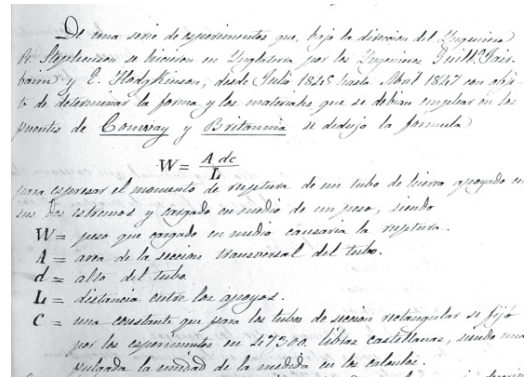 De una serie de esperimentos que, bajo la direccion del Yngeniero
R. Stephenson se hicieron en Ynglaterra por los Yngenieros Guill. Fair-
bairn y E. Hodgkinson, desde Julio 1845 hasta Abril 1847 con obje-
to de determinar la forma y los materiales que se debian emplear en los
puentes de Conway y Britannia se dedujo la formula
W = A dc / L
para espresar el momento de ruptura de un tubo de hierro apoyado en
sus dos estremos y cargado en medio de un peso, siendo
W = peso que cargado en medio causaria la ruptura.
A = area de la seccion transversal del tubo.
d = alto del tubo.
L = distancia entre los apoyos.
C = una constante que para los tubos de seccion rectangular se fijó
por los esperimentos en 47300 libras castellanas, siendo una
pulgada la unidad de la medida en los calculos.